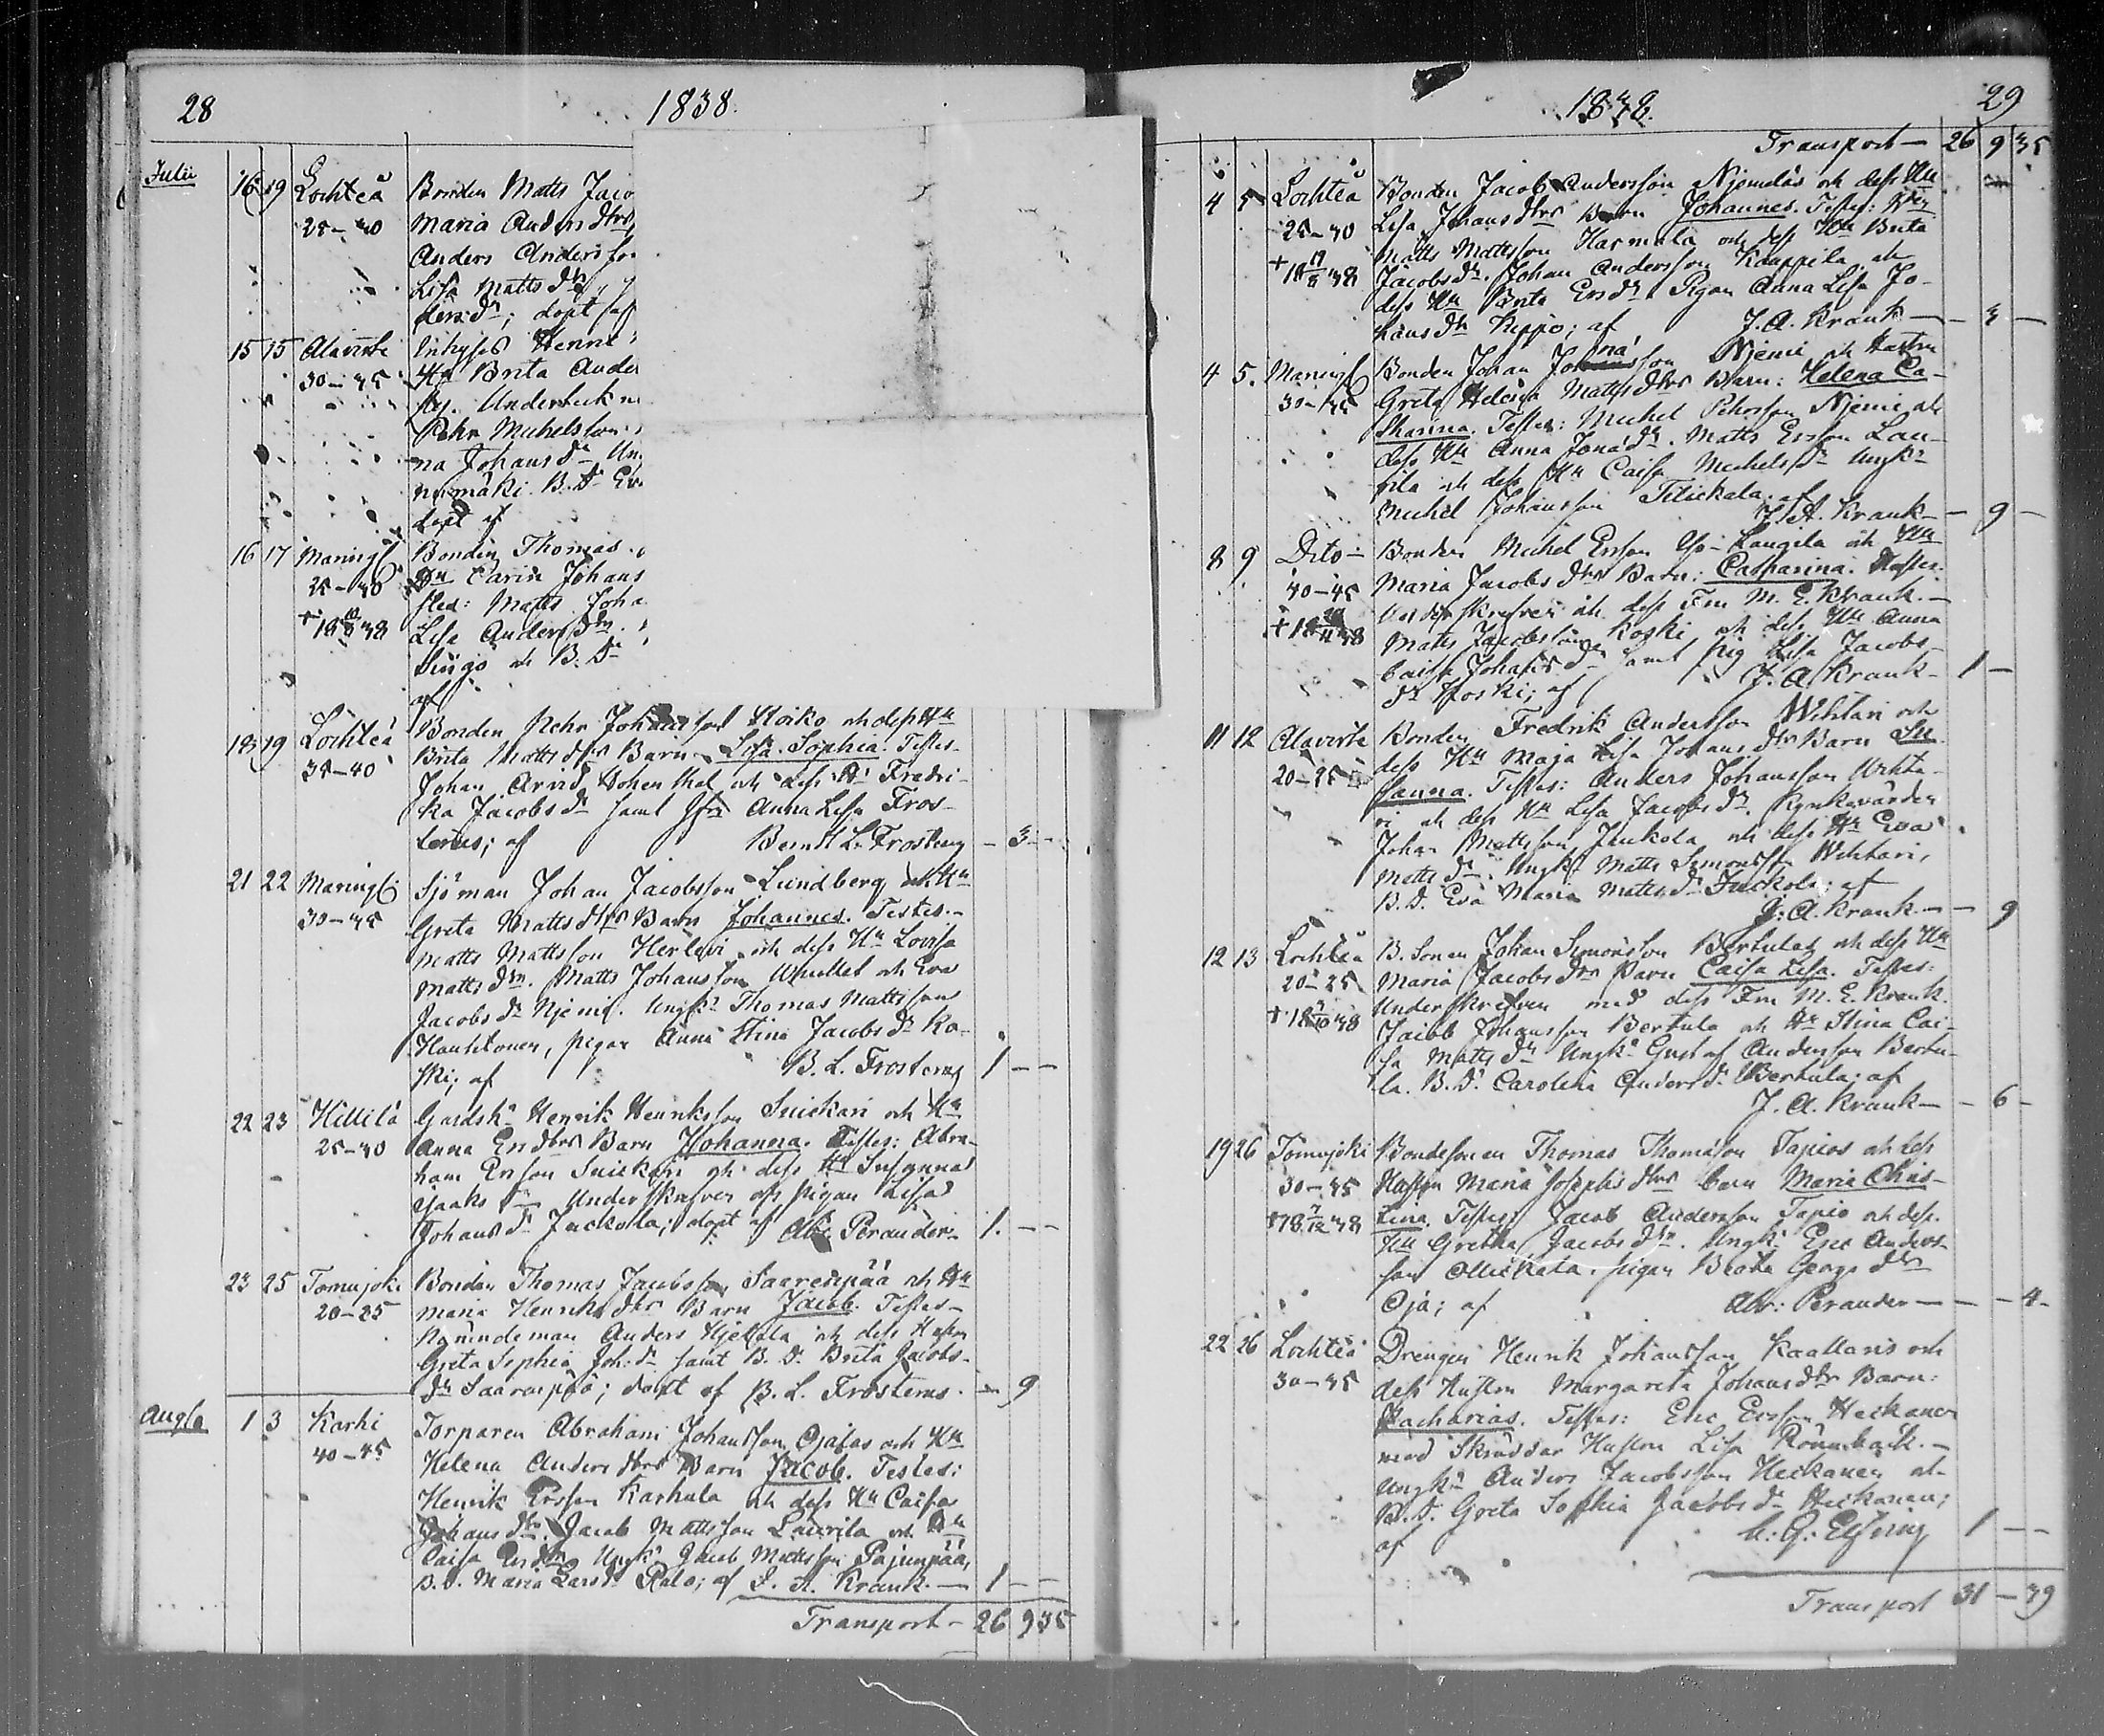 28
1838.
Julii 16 19 Lochteå Bonden Matts Jaco
25-30 Maria Anders dtrs
Anders Andersso
Lisa Matts dr
ders dr; döpt
15 15 Alaviste Inhyses Henri
30-35 Hu Brita Ander
Underteckn
Pehr Michelsson
na Johans dr Un
numäki. B. Dr Ev
döpt af
16 17 Maningk Bonden Thomas
25-30 Hu Carin Johans
+18 38 Matts Joha
Lisa Anders dr
och B. Dr
af
18 19 Lochteå Bonden Pehr Johansson och dess Hu
35-40 Brita Matts dtrs Barn Lisa Sophia. Testes.
Johan Arvid Hohenthal och dess Hu Fredri-
ka Jacobs dr samt Anna Lisa Fros-
terus; af Berndt L. Frosterus - 3 -
21 22 Maningk Sjöman Johan Jacobsson Lundberg och Hu
30-35 Greta Matts dtrs Barn Johannes. Testes.-
Matts Mattsson Herlevi och dess Hu Lovisa
Matts dr. Matts Johansson och Eva
Jacobs dr Njemi. Ungk. Thomas Mattsson
Hauhtonen, pigan Anna Stina Jacobs dr Ko-
ski; af B. L. Frosterus 1 - -
22 23 Hillilä Gårdsk. Henrik Henriksson Snickari och Hu
25-30 Anna Ers dtrs Barn Johanna. Testes: Abra-
ham Ersson Snickari och dess Hu Susanna
Isaaks dr Underskrifven och pigan Lisa
Johans dr Juckola; döpt af Abr. Perander 1. - -
23 25 Tomujoki Bonden Thomas Jacobsson Saarenpää och Hu
20-25 Maria Henriks dtrs Barn Jacob. Testes-
Nämndeman Anders och dess Hustru
Greta Sophia Joh: dr samt B. Dr. Brita Jacobs-
dr Saarenpää; döpt af B. L. Frosterus. - 9
Aug. 1 3 Karhi Torparen Abraham Johansson Ojalas och Hu
40-45 Helena Anders dtrs Barn Jacob. Testes:
Henrik Ersson Karhula och dess Hu Caisa
Johans dr. Jacob Mattsson Laurila och Hu
Caisa Ers dr Ungk. Jacob Mattsson Pajunpää,
B. D. Maria Lars dr Palo; af J. A. Krank. - 1 - -
Transport - 26 9 35
1838.
29
Transport - 26 9 35
4 5 Lochteå Bonden Jacob Andersson Njemeläs och dess Hu
25-30 Lisa Johans dtrs Barn Johannes. Testes:
+18 17/8 38 Matts Mattsson Harmala och dess Hu Brita
Jacobs dr. Johan Andersson Kauppila och
dess Hu Brita Ers dr. Pigan Anna Lisa Jo-
hans dr Keppo; af J. A. Krank - - 3 -
4 5. Maningk Bonden Johan Jonasson Njemi och Hustru
30-35 Greta Helena Matts dtrs Barn: Helena Ca-
tharina. Testes: Michel Pehrsson Njemi och
dess Hu Anna Jona dr. Matts Ersson Lau-
rila och dess Hu Caisa Michels dr Ungk.
Michel Johansson Titickala; af
J. A. Krank - - 9 -
8 9 Dito- Bonden Michel Ersson Laurila och Hu
40-45 Maria Jacobs dtrs Barn: Catharina. Testes:
+18 /11 38 Underskrifven och dess Fru M. E. Krank.-
Matts Jacobsson Koski och dess Hu Anna
Caisa Johans dr samt pig. Lisa Jacobs-
dr Koski; af J. A. Krank - 1 -
11 12 Alaviste Bonden Fredrik Andersson Wihtari och
20-25 dess Hu Maja Lisa Johans dtrs Barn Su-
sanna. Testes: Anders Johansson Wihta-
ri och dess Hu Lisa Jacobs dr. Kyrkovärden
Johan Mattsson Juckola och dess Hu Eva
Matts dr. Ungk. Matts Simonsson Wihtari,
B. D. Eva Maria Matts dr Juckola; af
J. A. Krank. - - 9
12 13 Lochteå B. Sonen Johan Simonsson Bertulas och dess Hu
20-25 Maria Jacobs dtrs Barn Caisa Lisa. Testes:
+18 /10 38 Underskrifven med dess Fru M. E. Krank.
Jacob Johansson Bertula och Hu Stina Cai-
sa Matts dr Ungk. Gustaf Andersson Bertu-
la. B. D. Carolina Anders dr Bertula; af
J. A. Krank - - 6 -
19 26 Tomujoki Bondesonen Thomas Thomasson Tapios och dess
30-35 Hustru Maria Josephs dtrs barn Maria Chris-
+18 7/12 38 tina. Testes: Jacob Andersson Tapio och dess
Hu Gretha Jacobs dr. Ungk. Eric Anders-
son Ollickala. pigan Beata Georgs dr
Oja; af Abr: Perander - - - 4 -
22 26 Lochteå Drengen Henrik Johansson Kaallaris och
30-35 dess Hustru Margareta Johans dtr Barn:
Zacharias. Testes: Eric Ersson Heckanen
med Skräddar Hustrun Lisa Rönnback.-
Ungk. Anders Jacobsson Heckanen och
B. D. Greta Sophia Jacobs dr Heckanen;
af C. G. Elfving 1 - -
Transport 31 - 39